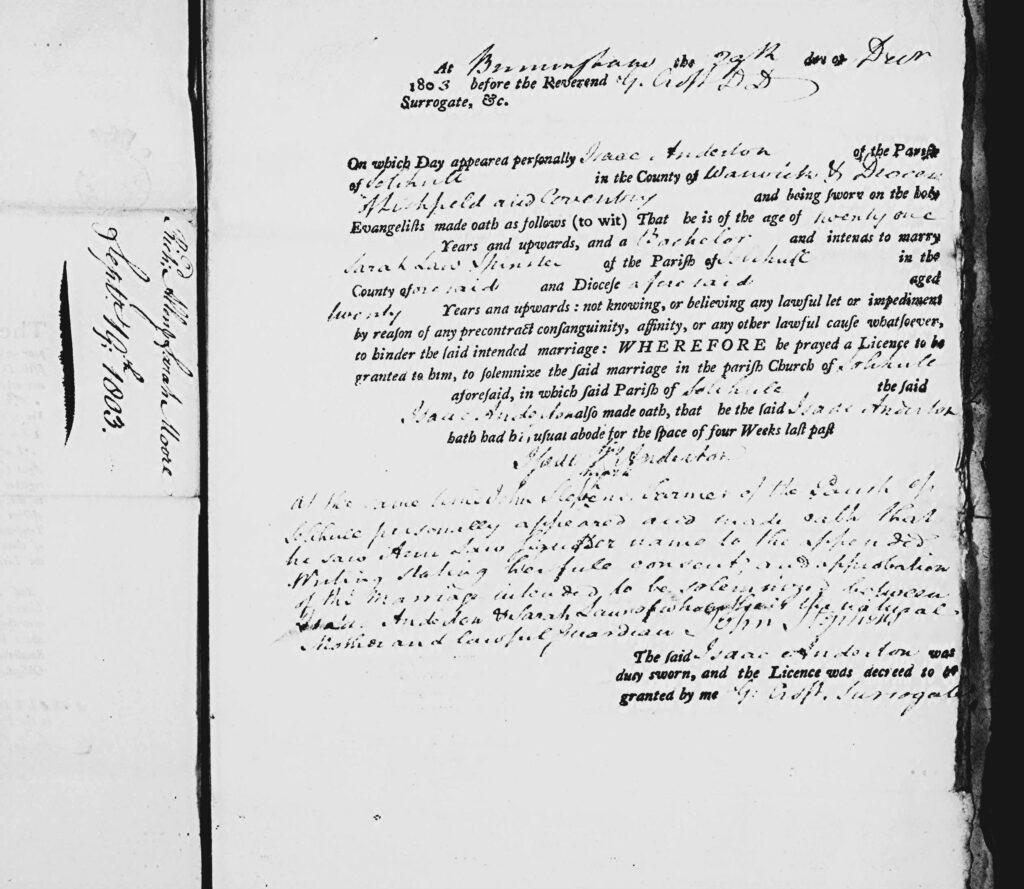 At Birmingham the 29th day of Decr
1803 before the Reverend G. Croft D D
Surrogate, &c.
On which Day appeared personally Isaac Anderton of the Parish
of Solihull in the County of Warwick & Diocese
of Lichfield and Coventry and being sworn on the holy
Evangelists made oath as follows (to wit) That he is of the age of twenty one
Years and upwards, and a Bachelor and intends to marry
Sarah Law Spinster of the Parish of Solihull in the
County aforesaid and Diocese aforesaid aged
twenty Years and upwards: not knowing, or believing any lawful let or impediment
by reason of any precontract consanguinity, affinity, or any other lawful cause whatsoever,
to hinder the said intended marriage: WHEREFORE he prayed a Licence to be
granted to him, to solemnize the said marriage in the parish Church of Solihull
aforesaid, in which said Parish of Solihull the said
Isaac Anderton also made oath, that he the said Isaac Anderton
hath had his usual abode for the space of four Weeks last past
Isaac Anderton
mark
At the same time John Stephens Farmer of the Parish of
Solihull personally appeared and made oath that
he saw Ann Law sign her name to the appended
Writing stating her full consent and approbation
of the Marriage intended to be solemnized between
Isaac Anderton & Sarah Law of whom she is the natural
Mother and lawful Guardian John Stephens
The said Isaac Anderton was
duly sworn, and the Licence was decreed to be
granted by me G. Croft Surrogate
Sarah Moore
Septr 19th 1803.